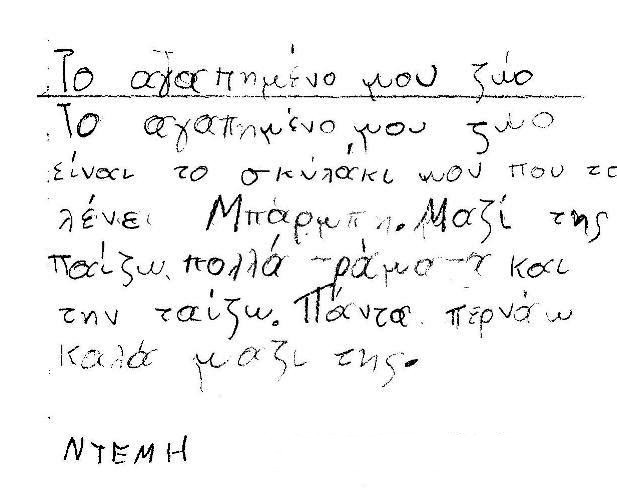 Το αγαπημένο μου ζώο
Το αγαπημένο μου ζωο
είναι το σκυλάκι μου που το
λένε Μπάρμπη. Μαζί της
παίζω πολλά ράματα και
την ταίζω. Πάντα περνάω
καλά μαζι της.
ΝΤΕΜΗ